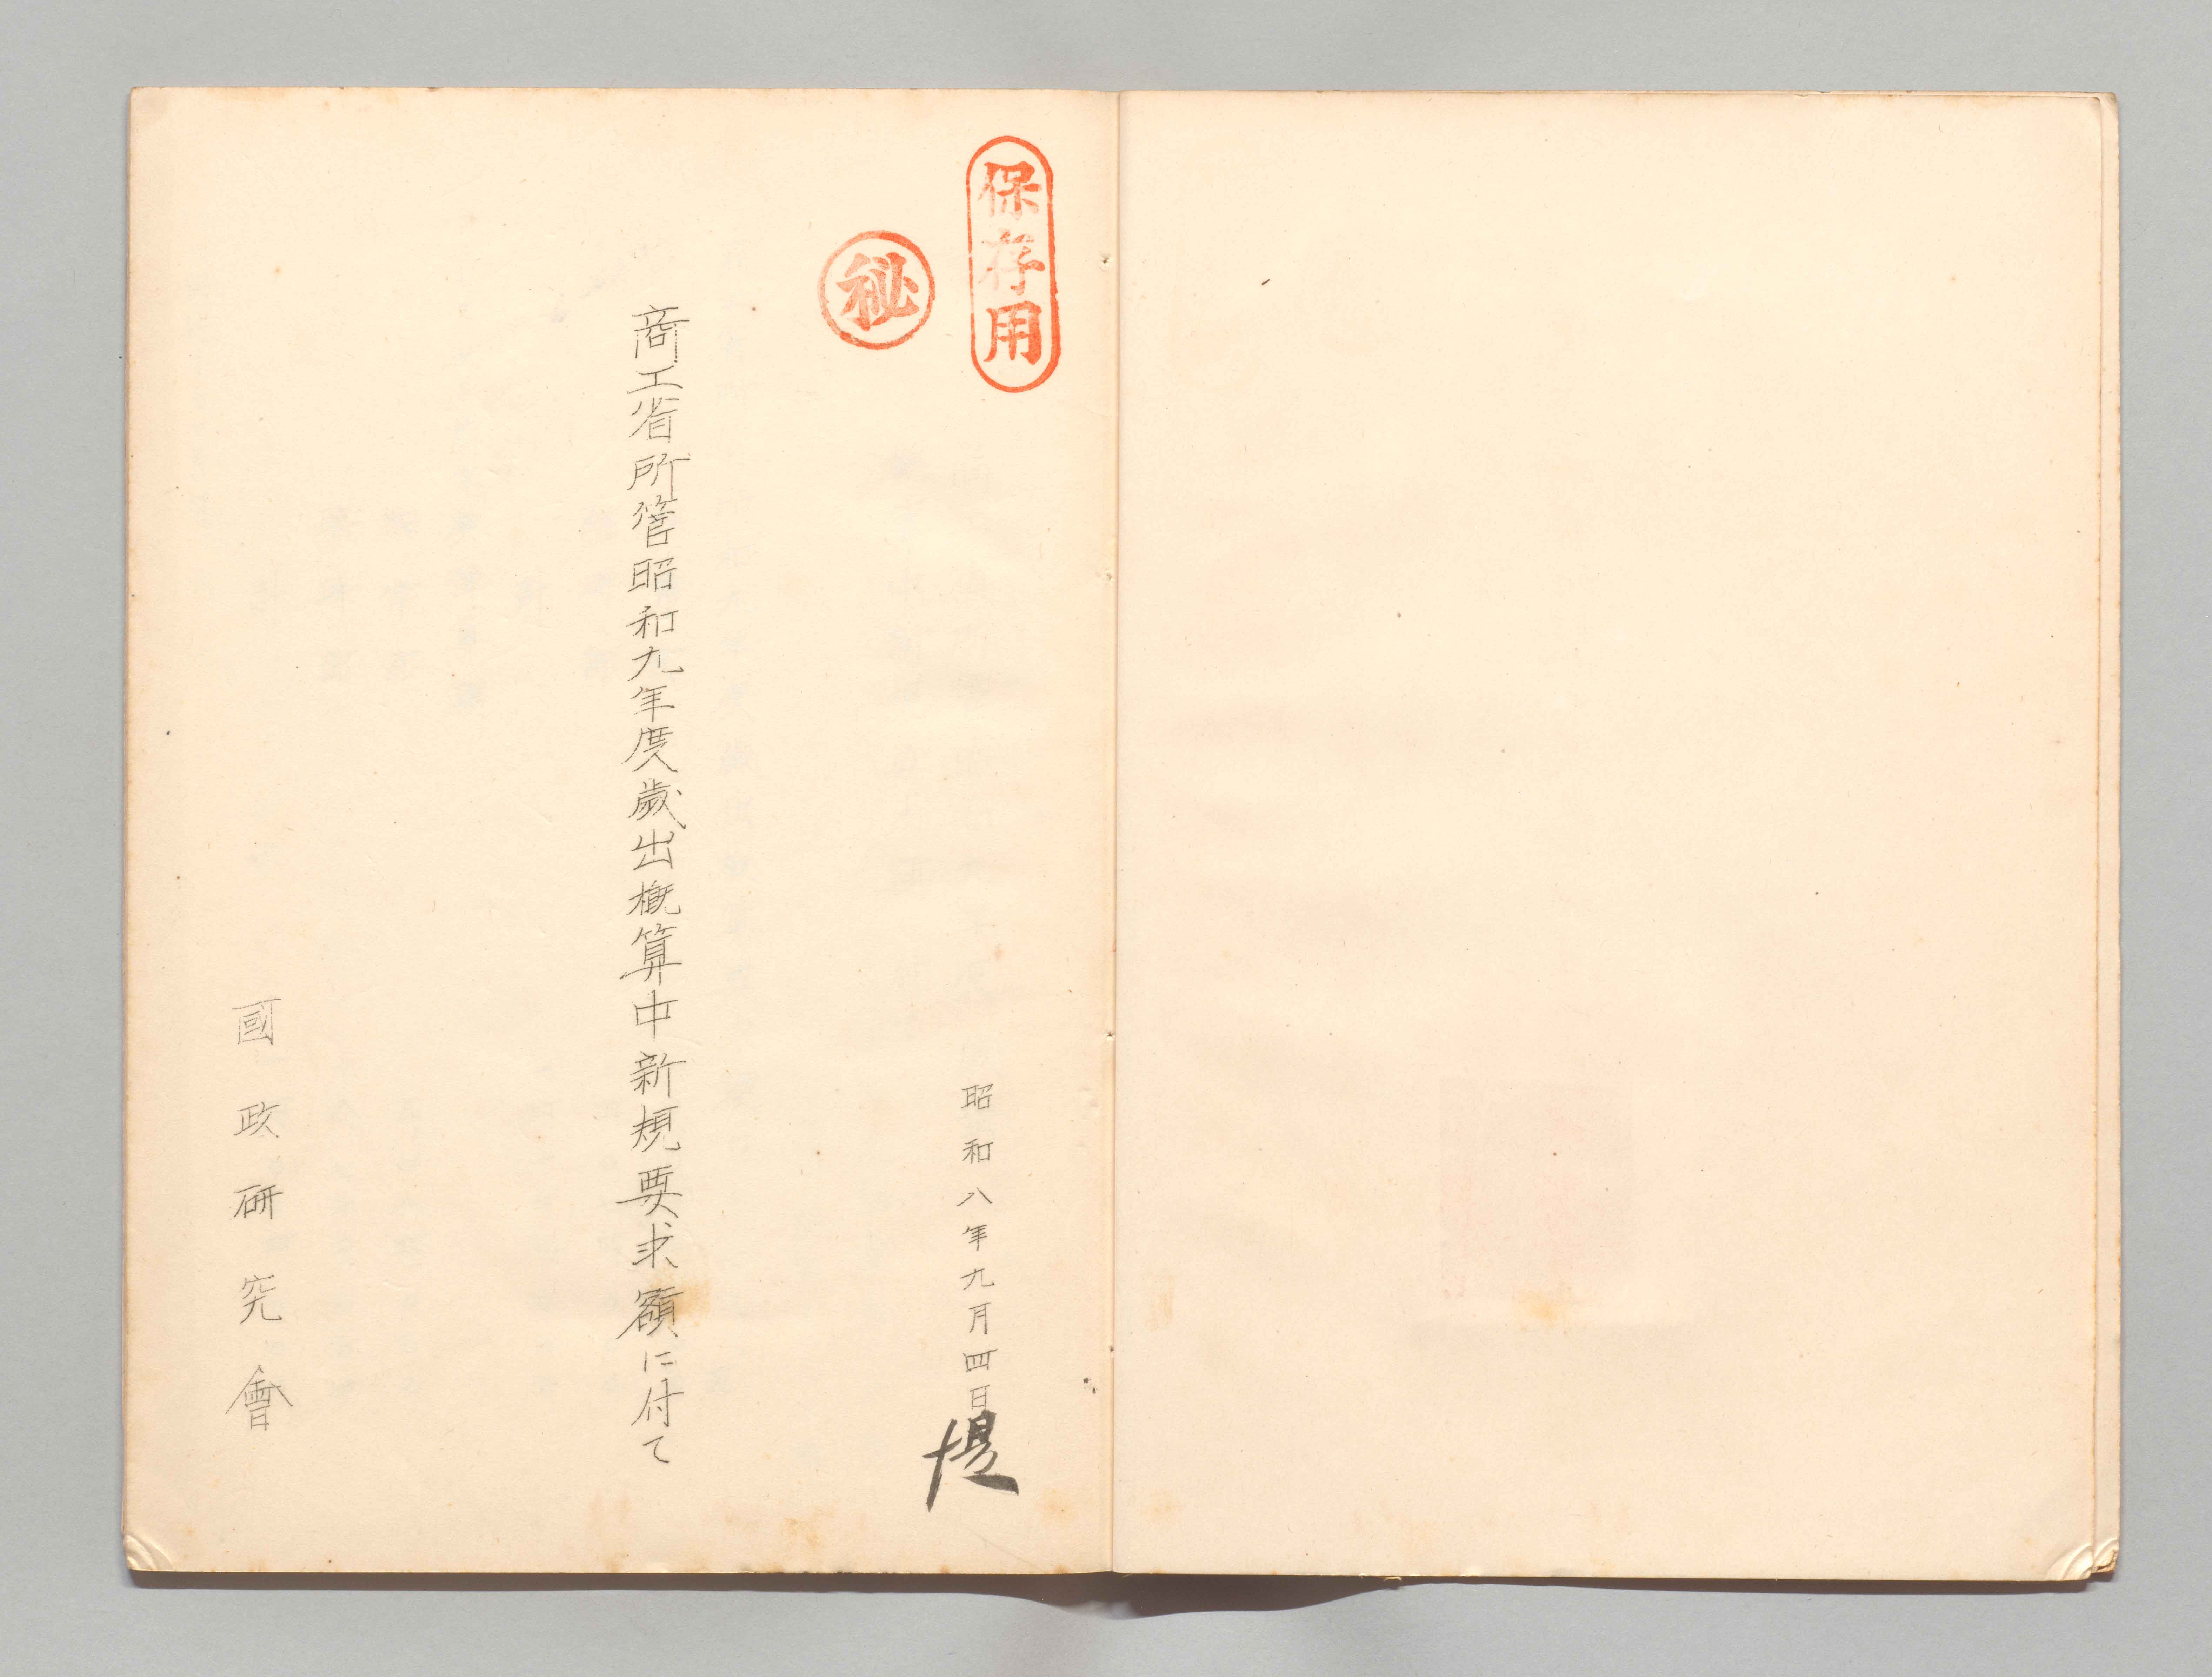 保存用
秘
昭和八年九月四日
堤
商工省所管昭和九年度歳出概算中新規要求額に付て
國政研究會